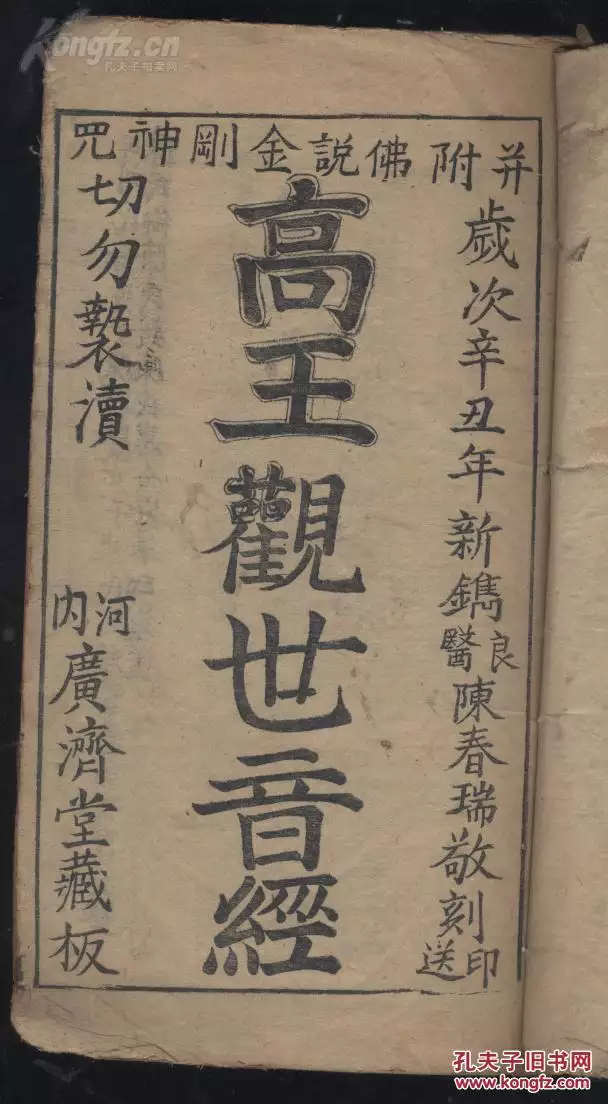 Kongfz.cn
孔夫子拍卖网
并附佛説金剛神咒
歲次辛丑年新鐫良醫陳春瑞敬刻印送
高王觀世音經
切勿褻瀆
河内廣濟堂藏板
孔夫子旧书网
www.kongfz.com